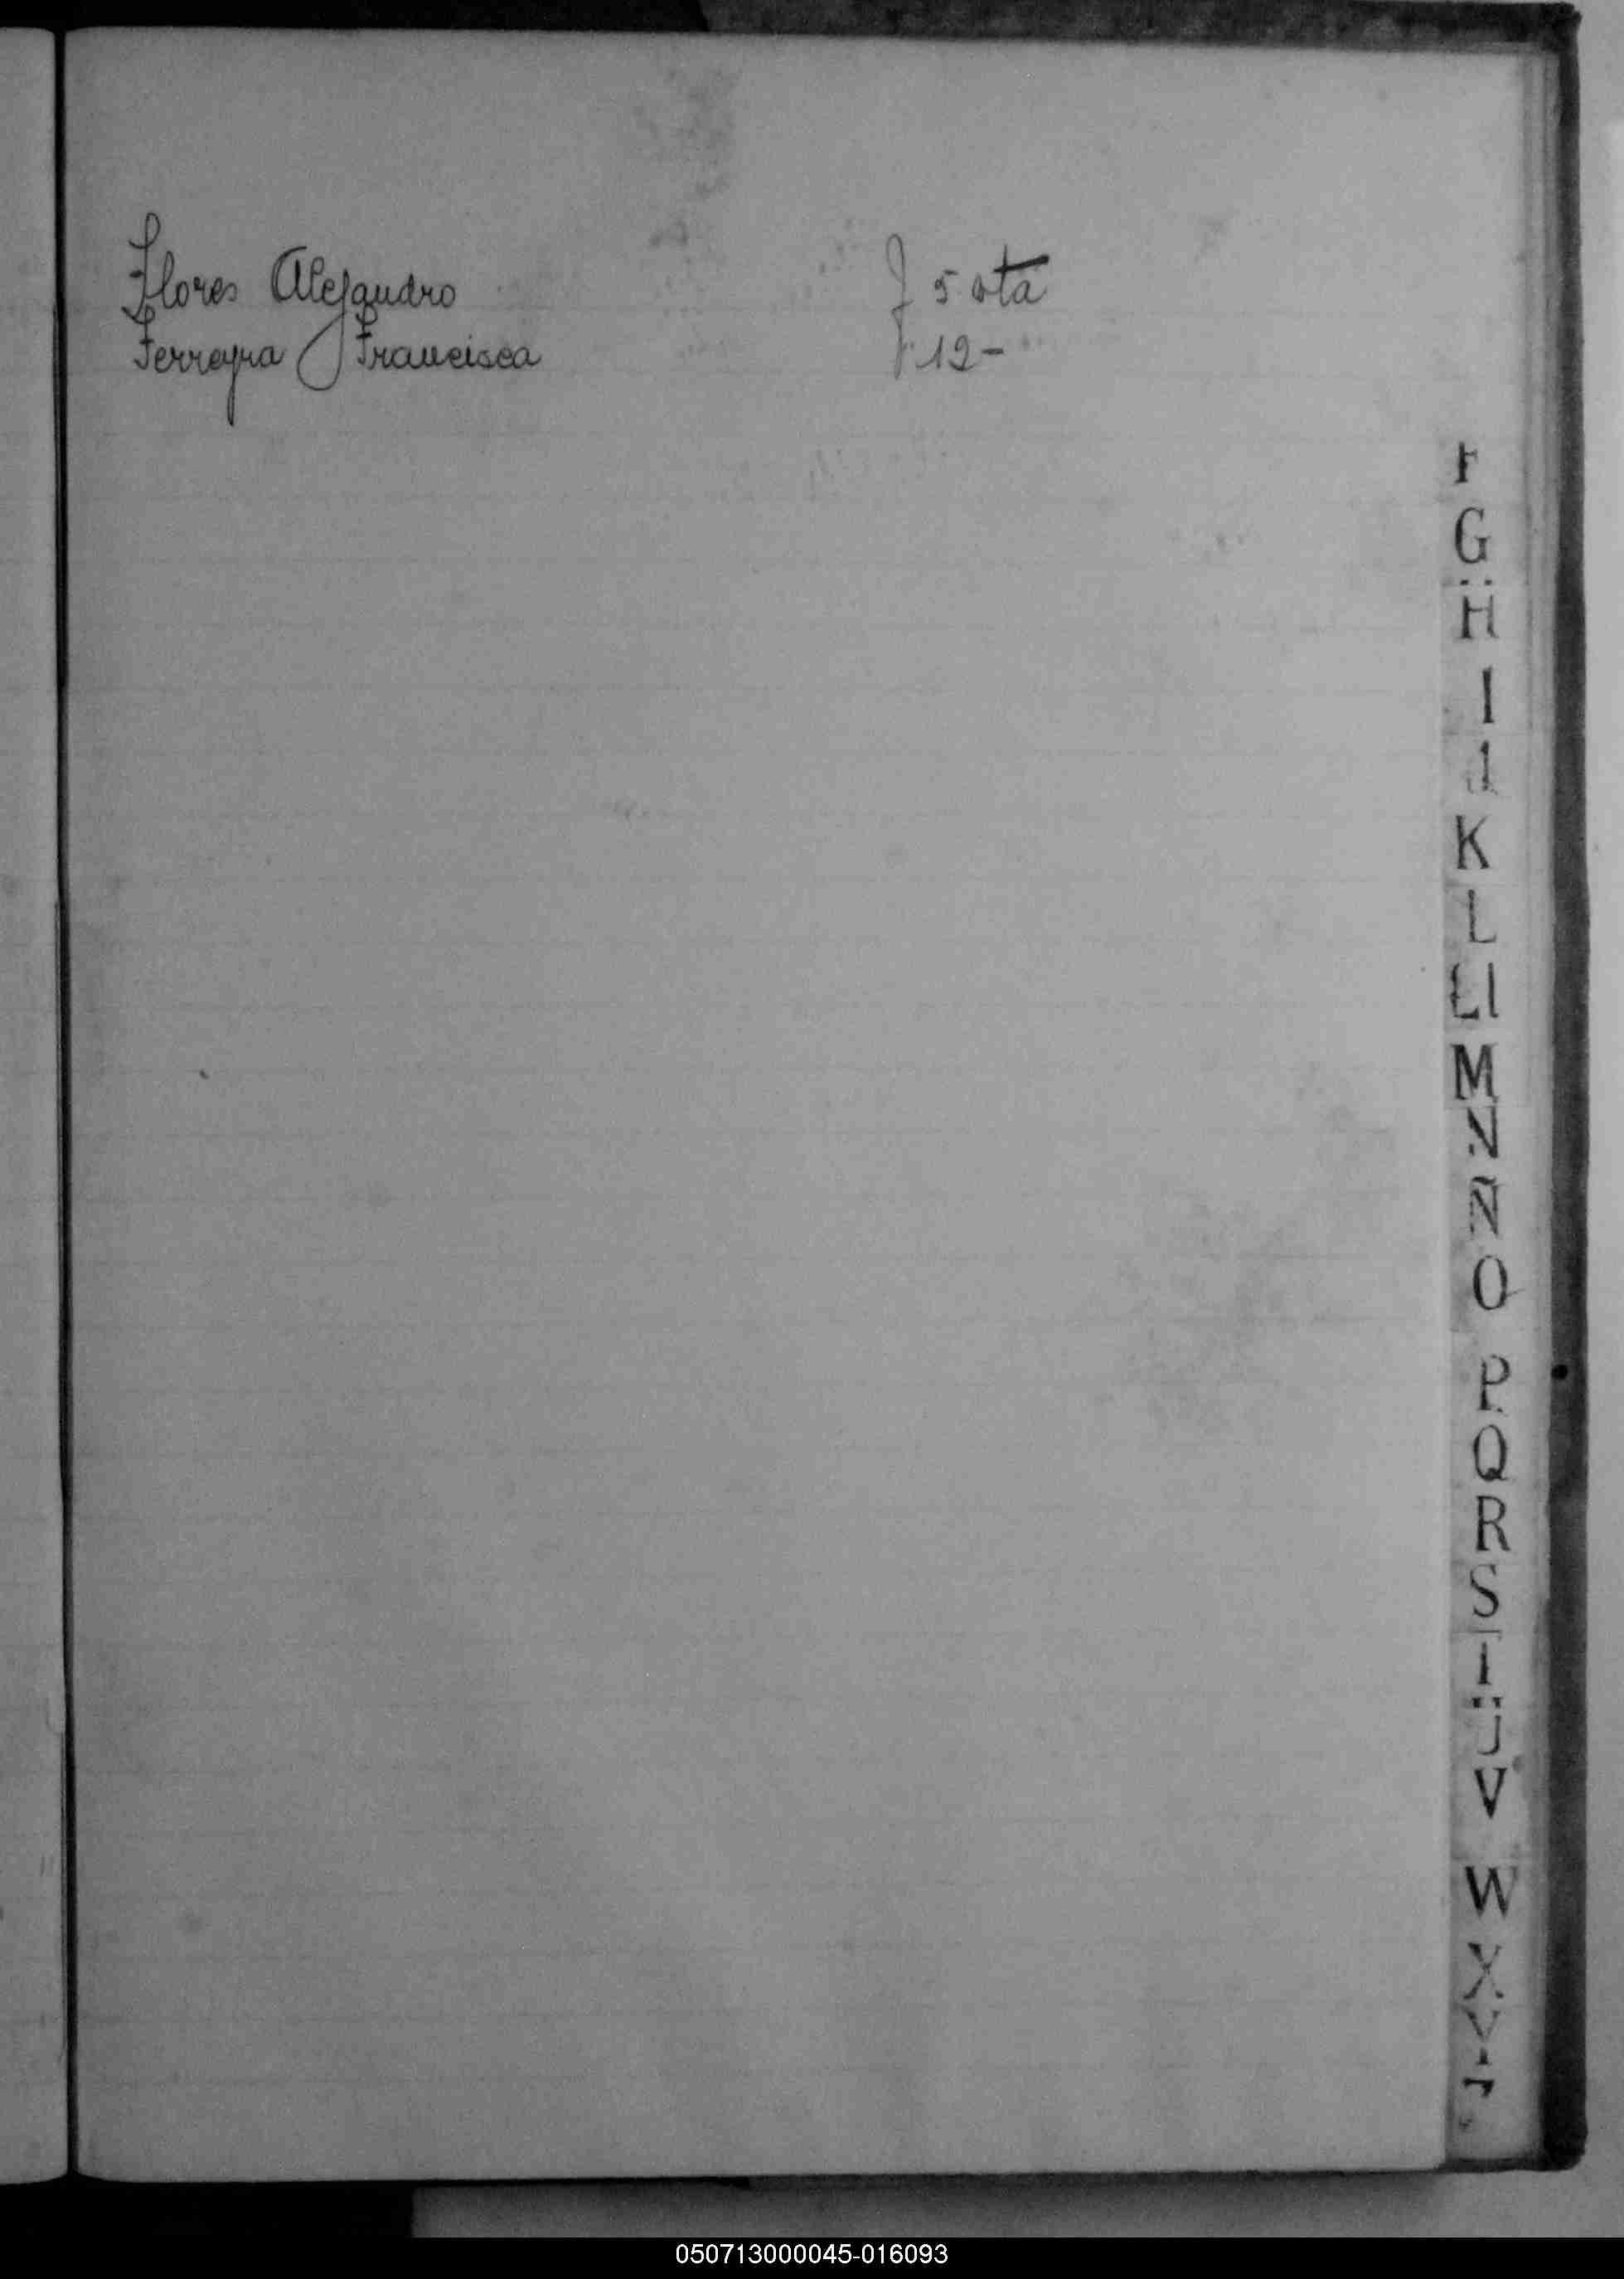 Flores Alejandro f 5 vta
Ferreyra Francisca f 12-
F
G
H
I
J
K
L
Ll
M
N
Ñ
O
P
Q
R
S
T
U
V
W
X
Y
050713000045-016093